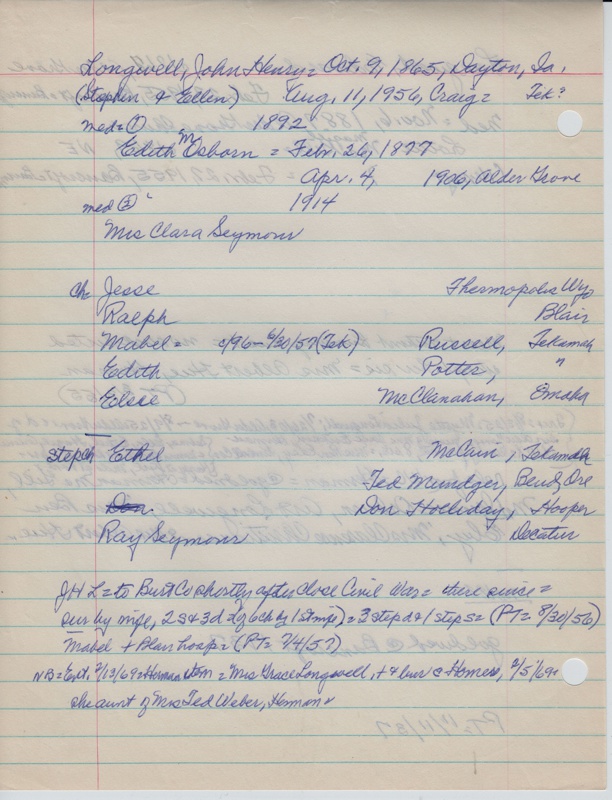 Longwell, John Henry = Oct. 9, 1865, Dayton, Ia.
(Stephen & Eellen) Aug. 11, 1956, Craig = Tek.
med = ① 1892
Edith M Osborn = Febr. 26, 1877
Apr. 4, 1906, Alder Grove
med ② 1914
Mrs Clara Seymour
Ch = Jesse Thermopolis Wyo
Raeph Blair
Mabel = c/96 - 6/30/57 (Tek) Russell, Tekamah
Edith Potter, "
Eelsie McClanahan, Omaha
stepch Ethel McCain, Tekamah
Ted Mundger, Bend, Ore
Don Holliday, Hooper
Ray Seymour Decatur
J H L = to Burt Co shortly after close Civil War = there since =
sur by wife, 2 s & 3 d = 3 step d & 1 step s = (PT = 8/30/56)
Mabel + Blair hosp = (PT = 7/4/57)
NB = Ent. 2/13/69 = Herman item = "Mrs Grace Longwell, + & bur @ Homer, 2/5/69 =
she aunt of Mrs Ted Weber, Herman